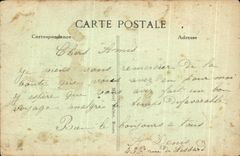 CARTE POSTALE
Correspondance
Adresse
Chers Amis
je viens vous remercier de la
bonté que vous avez eu pour moi
j'espère que vous avez fait un bon
voyage malgré le temps défavorable
Bien le bonjours à tous
Denis
rue de